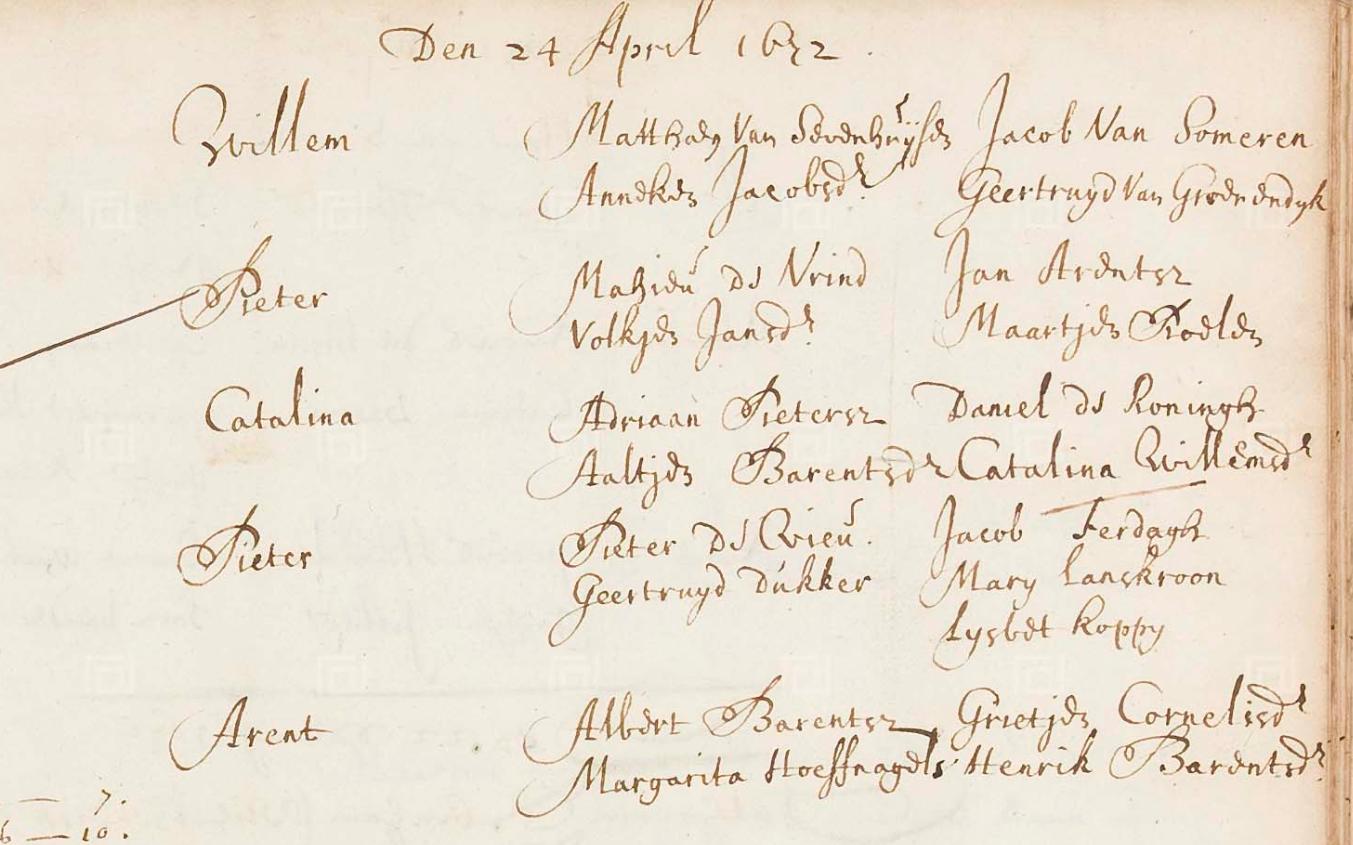 Den 24 April 1672
Willem Mattheus Van Sevenhuijsen Jacob Van Someren
Anneken Jacobsdr Geertruyd Van Groenendyk
Pieter Mahieu de Vrind Jan Arentsz
Volkjen Jansdr Maartjen Roelen
Catalina Adriaan Pietersz Daniel de Koningh
Aaltjen Barentsdr Catalina Willemsdr
Pieter Pieter de Jacob Ferdagh
Geertruyd Dukker Mary Lanskroon
Lysbet Koppy
Arent Albert Barentsz Grietjen Cornelisdr
Margarita Hoeffnagels Henrik Barentsdr
7.
6 — 10.